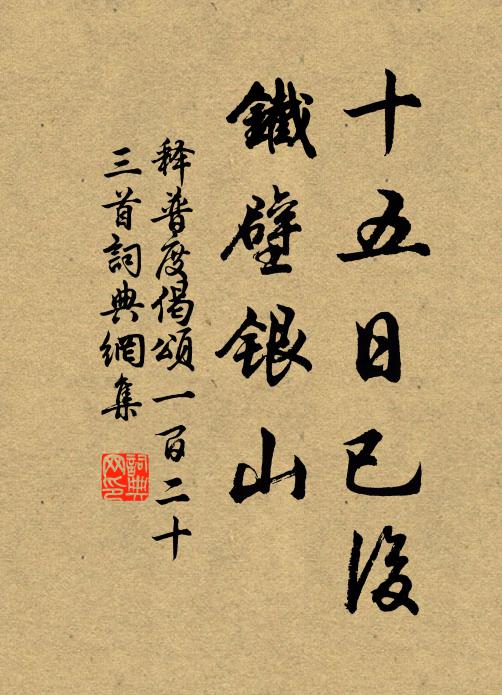 十五日已後
鐵壁銀山
释普度偈頌一百二十
三首詞典網集
詞典网印